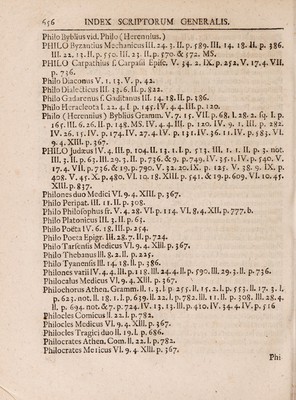 656 INDEX SCRIPTORUM GENERALIS.
Philo Byblius vid. Philo (Herennius.)
PHILO Byzantius Mechanicus III. 24. 3. II. p. 589. III. 14. 18. II. p. 386.
III. 22. 13. II. p. 550. III. 23. II. p. 570. & 572. MS.
PHILO Carpathius s. Carpasii Episc. V. 34. 2. IX. p. 252. V. 17. 4. VII.
p. 736.
Philo Diaconus V. 1. 13. V. p. 42.
Philo Dialecticus III. 33. 6. II. p. 822.
Philo Gadarenus s. Gaditanus III. 14. 18. II. p. 386.
Philo Heracleota I. 22. 4. I. p. 145. IV. 4. 4. III. p. 120.
Philo (Herennius) Byblius Gramm. V. 7. 15. VII. p. 68. I. 28. 2. sq. I. p.
165. III. 6. 26. II. p. 148. MS. IV. 4. 4. III. p. 120. IV. 9. 1. III. p. 282.
IV. 26. 15. IV. p. 174. IV. 27. 4. IV. p. 131. IV. 36. 11. IV. p. 583. VI.
9. 4. XIII. p. 367.
PHILO Judæus IV. 4. III. p. 104. II. 13. 1. I. p. 513. III. 1. 1. II. p. 3. not.
III. 3. II. p. 63. III. 29. 3. II. p. 736. & 9. p. 749. IV. 35. 1. IV. p. 540. V.
17. 4. VII. p. 736. & 19. p. 790. V. 32. 20. IX. p. 125. V. 38. 9. IX. p.
408. V. 45. X. p. 480. VI. 10. 18. XIII. p. 541. & 19. p. 609. VI. 10. 45.
XIII. p. 837.
Philones duo Medici VI. 9. 4. XIII. p. 367.
Philo Peripat. III. 11. II. p. 308.
Philo Philosophus fr. V. 4. 28. VI. p. 114. VI. 8. 4. XII. p. 777. b.
Philo Platonicus III. 3. II. p. 63.
Philo Poëta IV. 6. 18. III. p. 254.
Philo Poeta Epigr. III. 28. 7. II. p. 724.
Philo Tarsensis Medicus VI. 9. 4. XIII. p. 367.
Philo Thebanus III. 8. 2. II. p. 225.
Philo Tyanensis III. 14. 18. II. p. 386.
Philones varii IV. 4. 4. III. p. 118. III. 24. 4. II. p. 590. III. 29. 3. II. p. 736.
Philocalus Medicus VI. 9. 4. XIII. p. 367.
Philochorus Athen. Gramm. II. 1. 3. I. p. 255. II. 15. 2. I. p. 553. II. 17. 3. I.
p. 623. not. II. 18. 1. I. p. 639. II. 22. I. p. 782. III. 11. II. p. 308. III. 28. 4.
II. p. 694. not. & 7. p. 724. IV. 13. 13. III. p. 410. IV. 34. 4. IV. p. 516
Philocles Comicus II. 22. I. p. 782.
Philocles Medicus VI. 9. 4. XIII. p. 367.
Philocles Tragici duo II. 19. I. p. 686.
Philocrates Athen. Com. II. 22. I. p. 782.
Philocrates Medicus VI. 9. 4. XIII. p. 367.
Phi